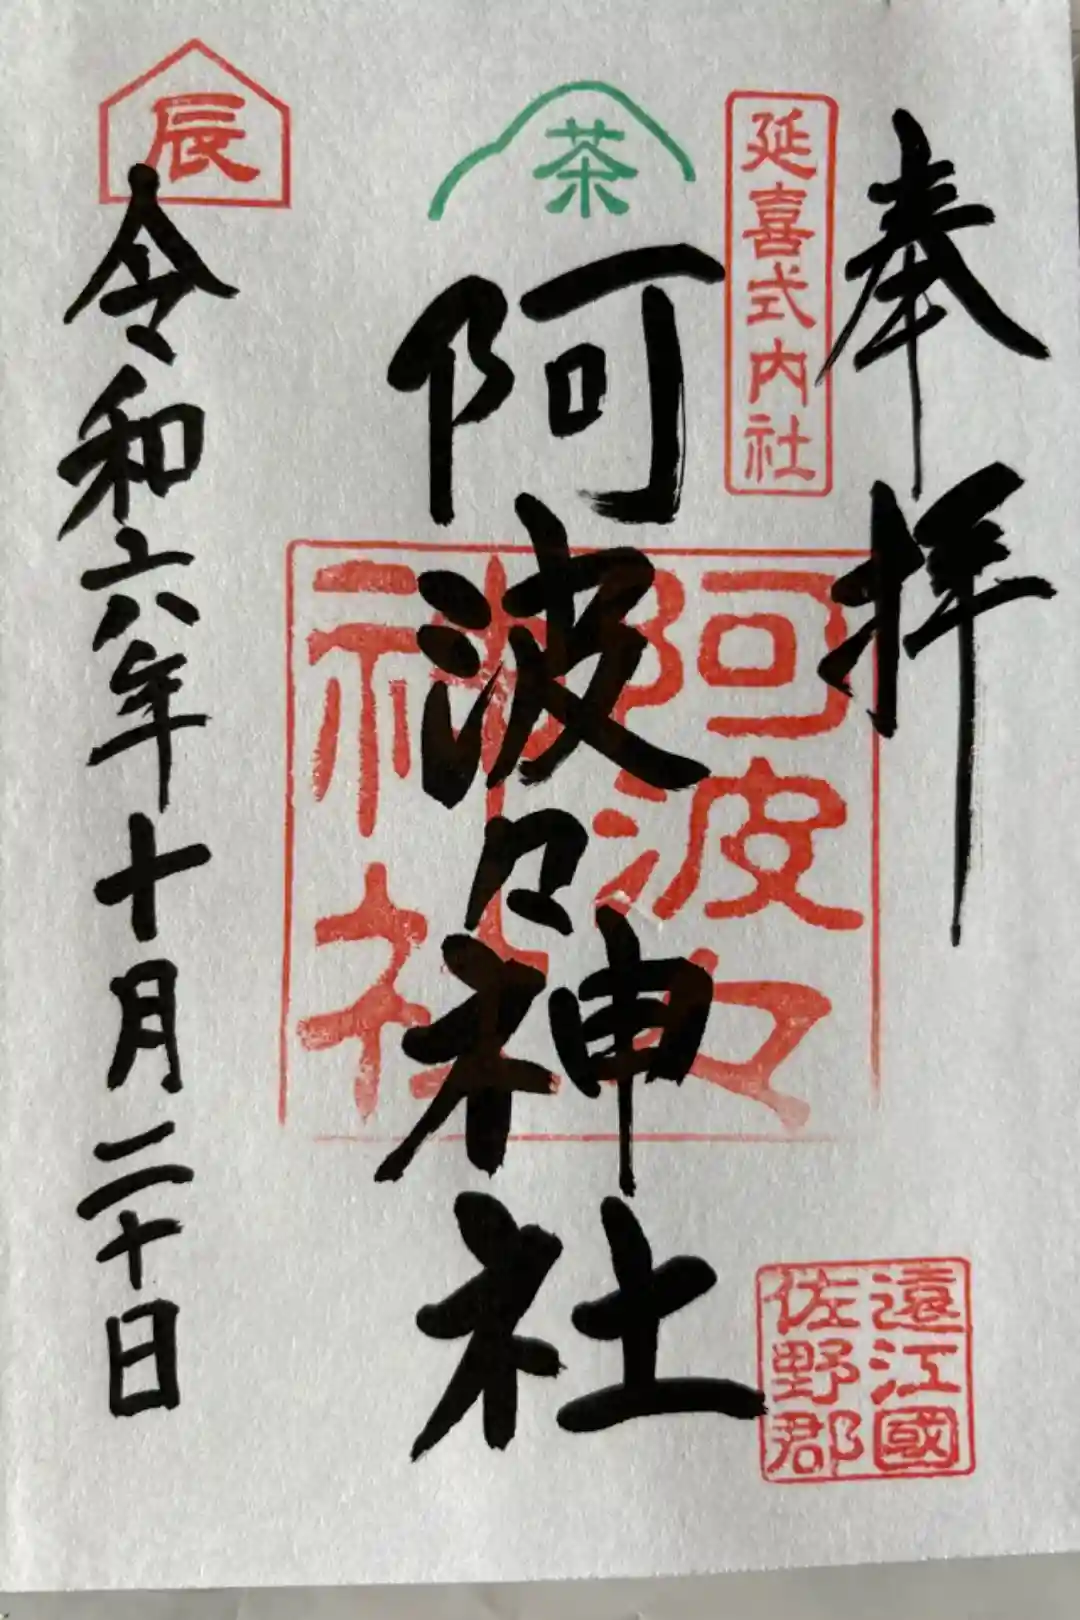 奉拝
延喜式内社
遠江國
佐野郡
茶
阿波々神社
阿波々
神社
辰
令和六年十月二十日